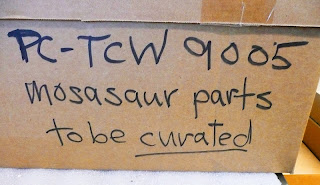 PC-TCW 9005
mosasaur parts
to be curated